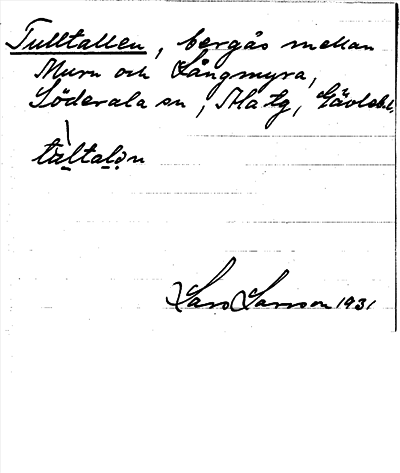 Tulltallen, bergås mellan
Murn och Långmyra,
Söderala sn, Ala tg, Gävleb.l.
tàltalọn
Lars Larsson 1931